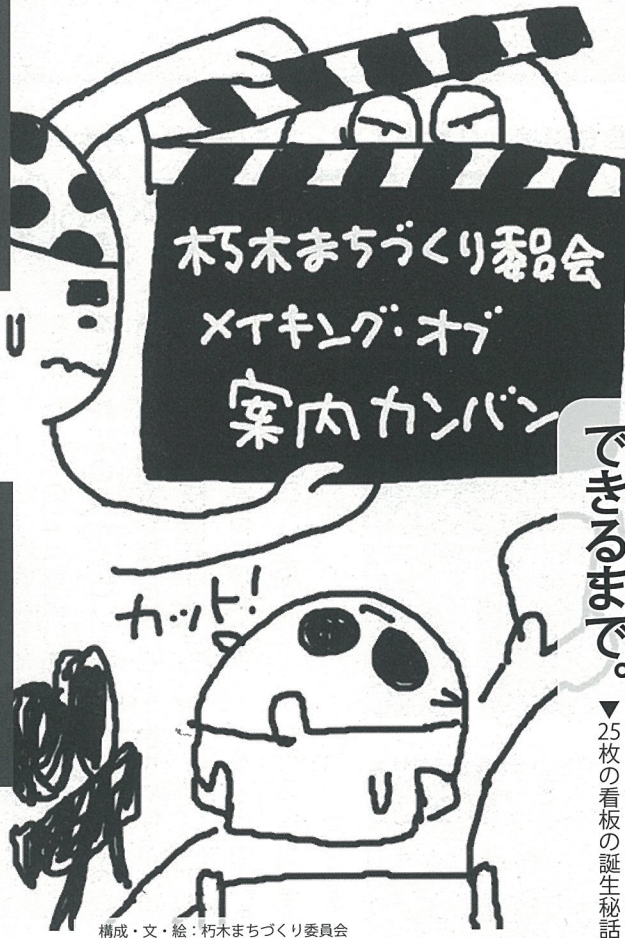 朽木まちづくり委員会
メイキング・オブ
案内カンバン
できるまで。
▼25枚の看板の誕生秘話
カット!
構成・文・絵:朽木まちづくり委員会